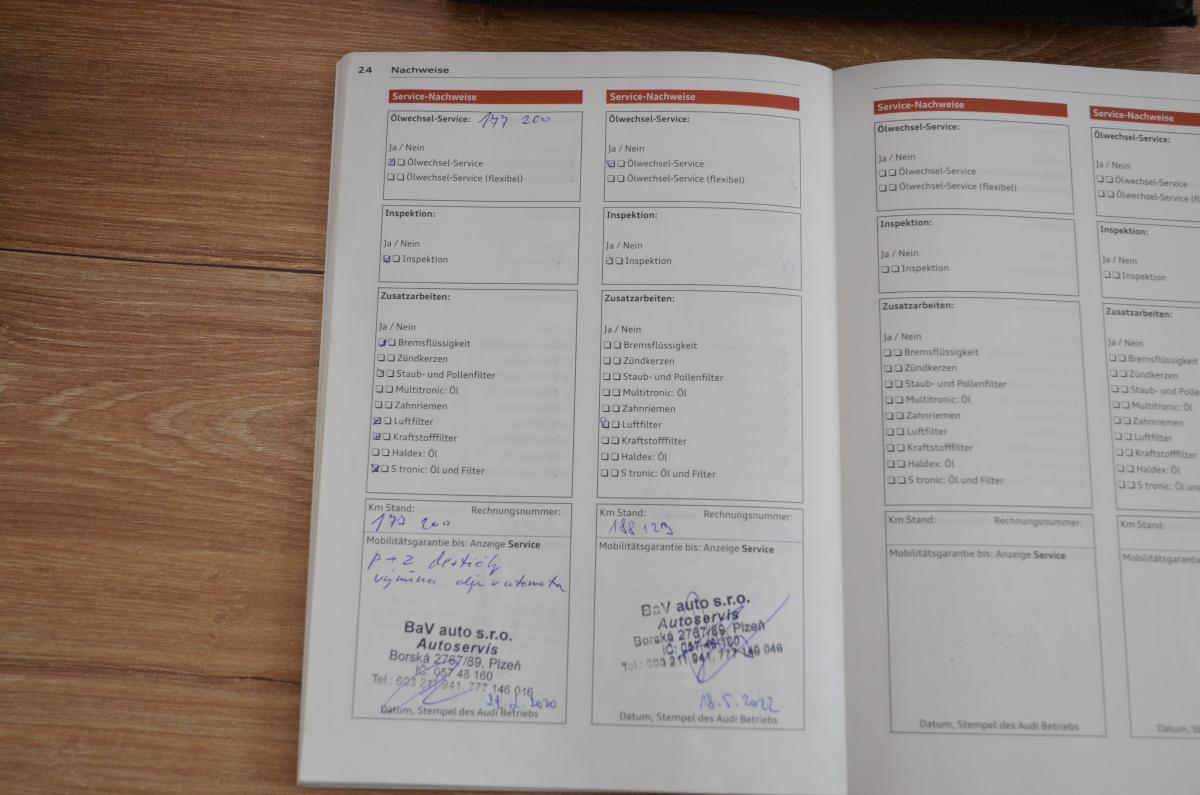 24 Nachweise
Service-Nachweise
Ölwechsel-Service: 177 200
Ja / Nein
Ölwechsel-Service
Ölwechsel-Service (flexibel)
Inspektion:
Ja / Nein
Inspektion
Zusatzarbeiten:
Ja / Nein
Bremsflüssigkeit
Zündkerzen
Staub- und Pollenfilter
Multitronic: Öl
Zahnriemen
Luftfilter
Kraftstofffilter
Haldex: Öl
S tronic: Öl und Filter
Km Stand: Rechnungsnummer:
177 200
Mobilitätsgarantie bis: Anzeige Service
p+z destičky
výměna oleje v automatu
BaV auto s.r.o.
Autoservis
Borská 2767/89, Plzeň
IČ: 057 48 160
Tel.: 603 211 941, 777 146 046
2020
Datum, Stempel des Audi Betriebs
Service-Nachweise
Ölwechsel-Service:
Ja / Nein
Ölwechsel-Service
Ölwechsel-Service (flexibel)
Inspektion:
Ja / Nein
Inspektion
Zusatzarbeiten:
Ja / Nein
Bremsflüssigkeit
Zündkerzen
Staub- und Pollenfilter
Multitronic: Öl
Zahnriemen
Luftfilter
Kraftstofffilter
Haldex: Öl
S tronic: Öl und Filter
Km Stand: Rechnungsnummer:
188 123
Mobilitätsgarantie bis: Anzeige Service
BaV auto s.r.o.
Autoservis
Borská 2767/89, Plzeň
IČ: 057 48 160
Tel.: 603 211 941, 777 146 046
18.5.2022
Datum, Stempel des Audi Betriebs
Service-Nachweise
Ölwechsel-Service:
Ja / Nein
Ölwechsel-Service
Ölwechsel-Service (flexibel)
Inspektion:
Ja / Nein
Inspektion
Zusatzarbeiten:
Ja / Nein
Bremsflüssigkeit
Zündkerzen
Staub- und Pollenfilter
Multitronic: Öl
Zahnriemen
Luftfilter
Kraftstofffilter
Haldex: Öl
S tronic: Öl und Filter
Km Stand: Rechnungsnummer:
Mobilitätsgarantie bis: Anzeige Service
Datum, Stempel des Audi Betriebs
Service-Nachweise
Ölwechsel-Service:
Ja / Nein
Ölwechsel-Service
Ölwechsel-Service (fl
Inspektion:
Ja / Nein
Inspektion
Zusatzarbeiten:
Ja / Nein
Bremsflüssigkeit
Zündkerzen
Staub- und Polle
Multitronic: Öl
Zahnriemen
Luftfilter
Kraftstofffilter
Haldex: Öl
S tronic: Öl un
Km Stand:
Mobilitätsgarantie
Datum, S